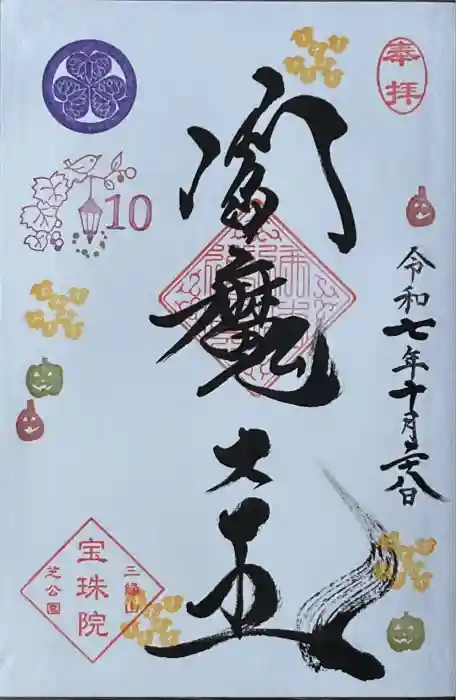 奉拝
令和七年十月二八日
閻魔大王
10
三縁山
宝珠院
芝公園